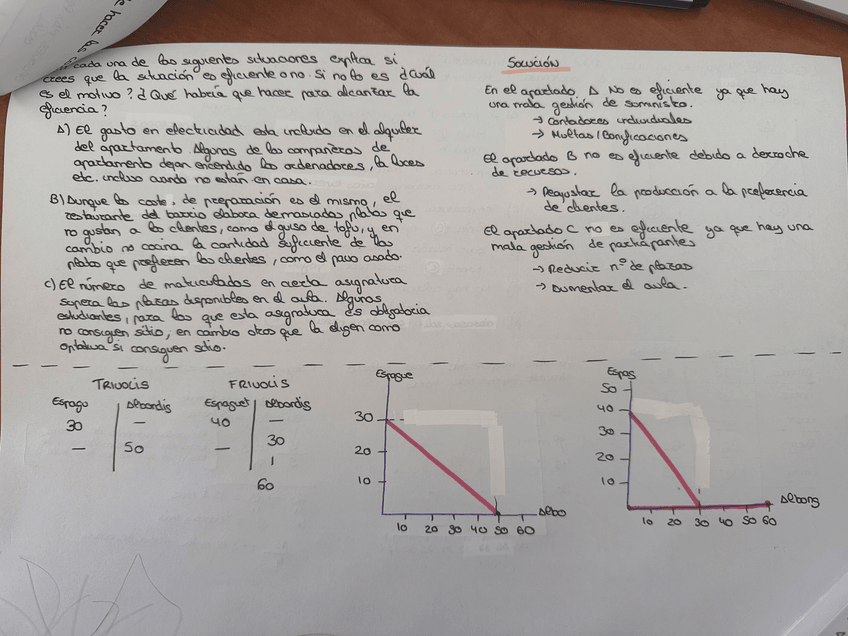 hacer los
cada una de las siguientes situaciones explica si
crees que la situación es eficiente o no. Si no lo es ¿Cuál
es el motivo? ¿Qué habría que hacer para alcanzar la
eficiencia?
A) El gasto en electricidad esta incluido en el alquiler
del apartamento. Algunos de los compañeros de
apartamento dejan encendido los ordenadores, la luces
etc. incluso cuando no están en casa.
B) Aunque los coste. de preparación es el mismo, el
restaurante del barrio elabora demasiados platos que
no gustan a los clientes, como el guiso de tofu, y en
cambio no cocina la cantidad suficiente de los
platos que prefieren los clientes, como el pavo asado.
C) El número de matriculados en cierta asignatura
supera las plazas disponibles en el aula. Algunos
estudiantes, para los que esta asignatura es obligatoria
no consiguen sitio, en cambio otros que la eligen como
optativa si consiguen sitio.
Solución
En el apartado A No es eficiente ya que hay
una mala gestión de suministro.
→ Contadores individuales
→ Multas/Bonificaciones
El apartado B no es eficiente debido a derroche
de recursos.
→ Reajustar la producción a la preferencia
de clientes.
El apartado C no es eficiente ya que hay una
mala gestión de participantes
→ Reducir nº de plazas
→ Aumentar el aula.
TRIVOLIS
Espagu Albondis
30 —
— 50
FRIVOLIS
Espaguet Albondis
40 —
— 30
|
60
Espague
30
20
10
10 20 30 40 50 60
Albo
Espag
50
40
30
20
10
10 20 30 40 50 60
Albong